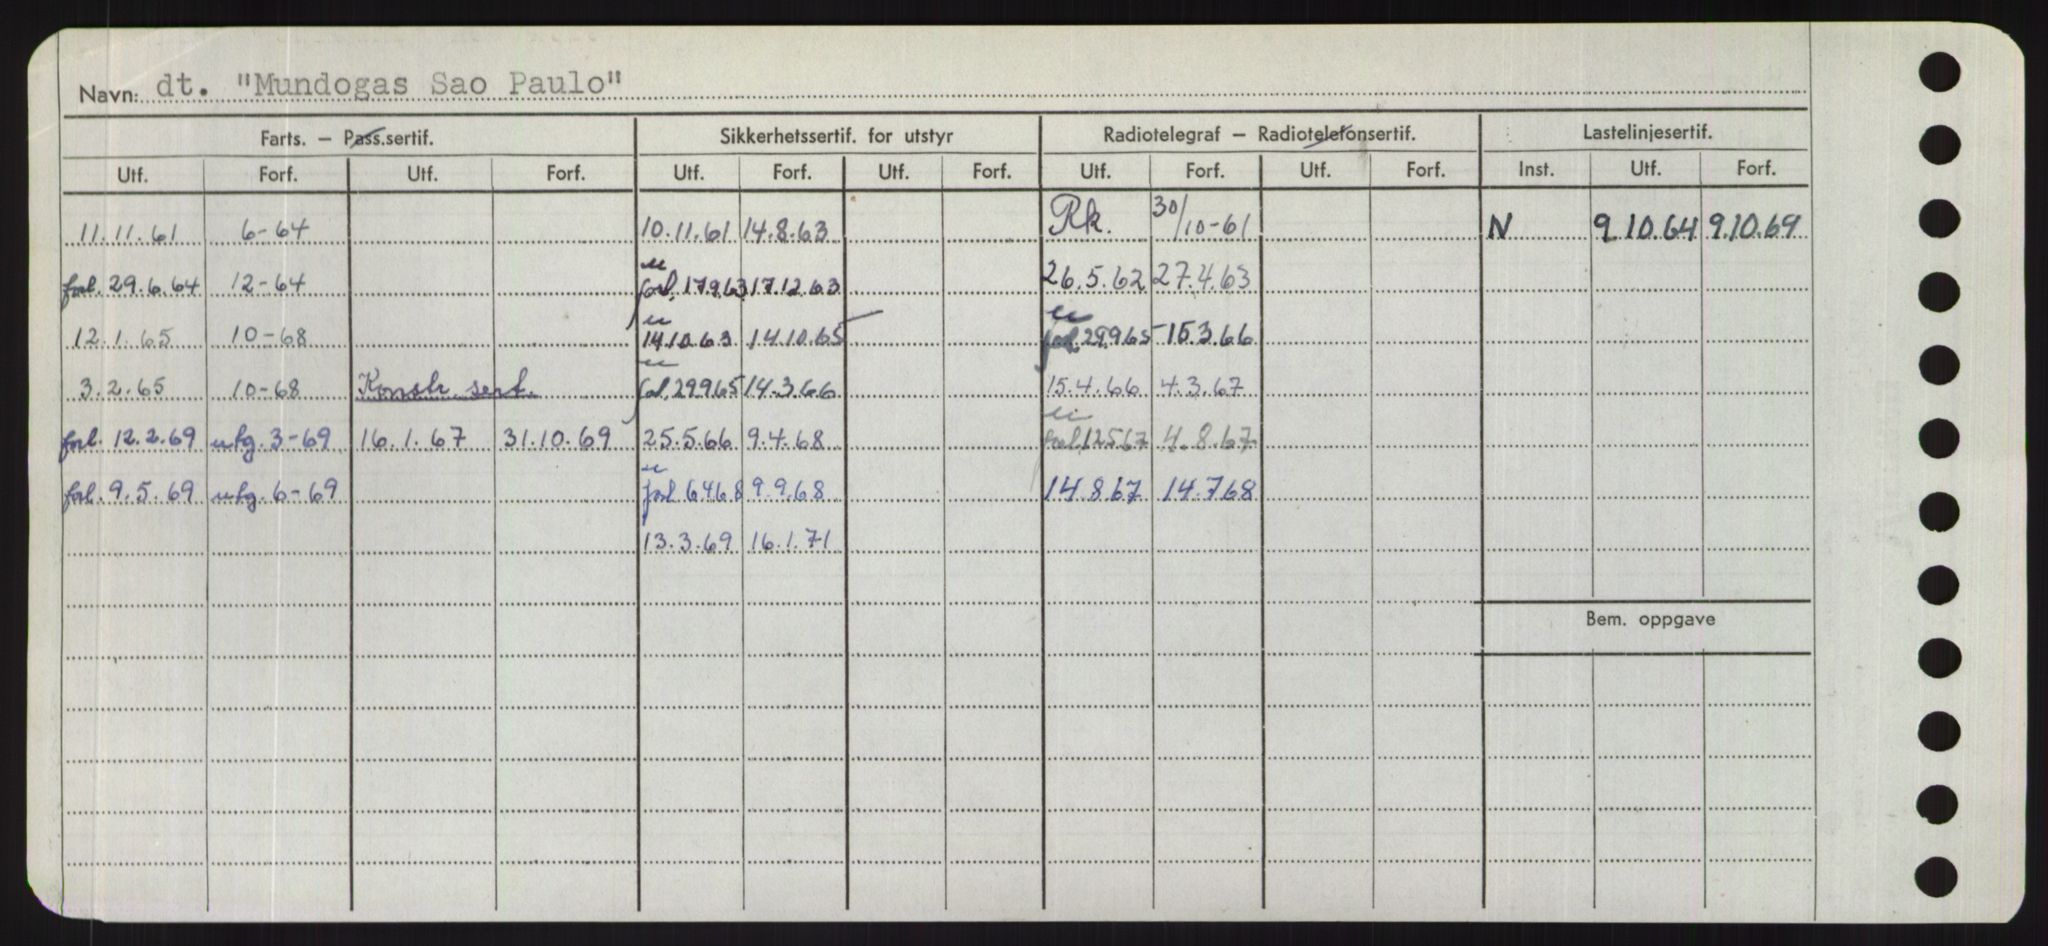 Navn: dt. "Mundogas Sao Paulo"
Farts. – Pass.sertif. Sikkerhetssertif. for utstyr Radiotelegraf – Radiotelefonsertif. Lastelinjesertif.
Utf. Forf. Utf. Forf. Utf. Forf. Utf. Forf. Utf. Forf. Utf. Forf. Inst. Utf. Forf.
11.11.61 6-64 10.11.61 14.8.63 Rk. 30/10-61 N 9.10.64 9.10.69
forl. 29.6.64 12-64 forl. 17963 17.12.63 26.5.62 27.4.63
12.1.65 10-68 14.10.63 14.10.65 forl. 29965 15.3.66
3.2.65 10-68 Konstr. sert. forl. 29965 14.3.66 15.4.66 4.3.67
forl. 12.2.69 utg. 3-69 16.1.67 31.10.69 25.5.66 9.4.68 forl. 12567 4.8.67
forl. 9.5.69 utg. 6-69 forl 6468 9.9.68 14.8.67 14.768
13.3.69 16.1.71
Bem. oppgave